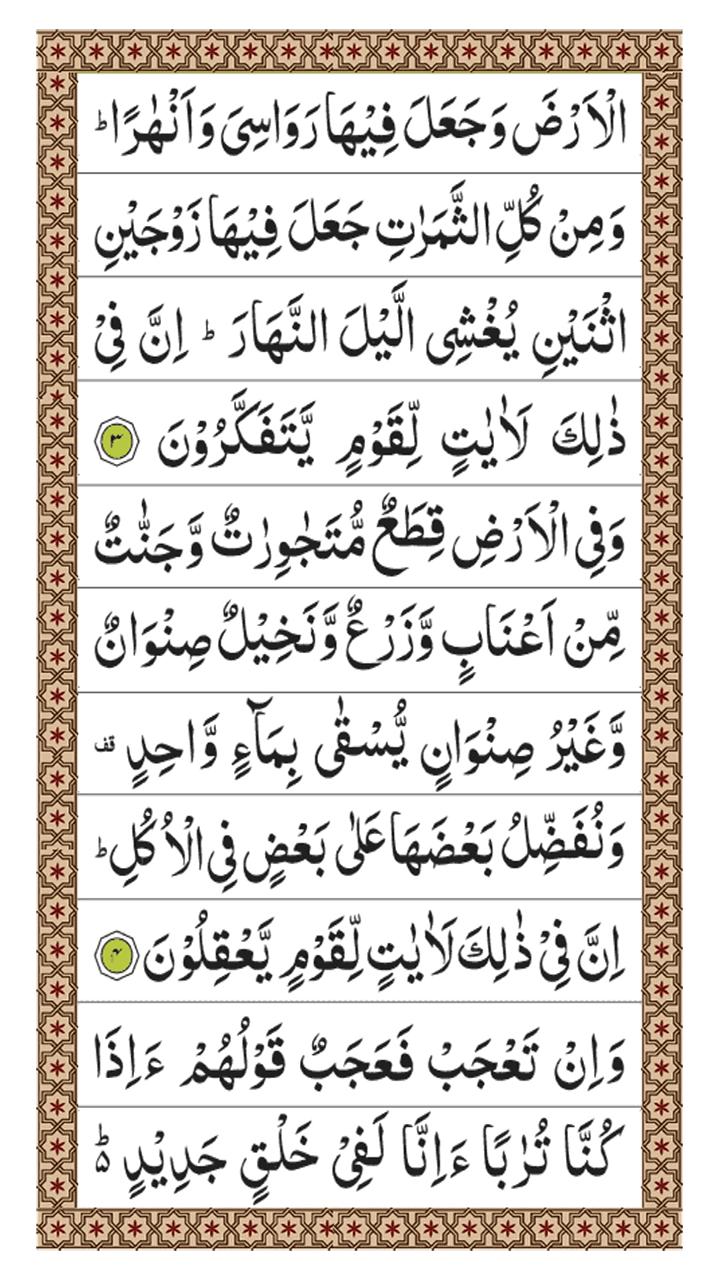 الْاَرْضَ وَجَعَلَ فِيْهَا رَوَاسِىَ وَاَنْهٰرًا ؕ
وَمِنْ كُلِّ الثَّمَرٰتِ جَعَلَ فِيْهَا زَوْجَيْنِ
اثْنَيْنِ يُغْشِى الَّيْلَ النَّهَارَ ؕ اِنَّ فِىْ
ذٰلِكَ لَاٰيٰتٍ لِّقَوْمٍ يَّتَفَكَّرُوْنَ ۳
وَفِى الْاَرْضِ قِطَعٌ مُّتَجٰوِرٰتٌ وَّجَنّٰتٌ
مِّنْ اَعْنَابٍ وَّزَرْعٌ وَّنَخِيْلٌ صِنْوَانٌ
وَّغَيْرُ صِنْوَانٍ يُّسْقٰى بِمَآءٍ وَّاحِدٍ قف
وَنُفَضِّلُ بَعْضَهَا عَلٰى بَعْضٍ فِى الْاُكُلِ ؕ
اِنَّ فِىْ ذٰلِكَ لَاٰيٰتٍ لِّقَوْمٍ يَّعْقِلُوْنَ ۴
وَاِنْ تَعْجَبْ فَعَجَبٌ قَوْلُهُمْ ءَاِذَا
كُنَّا تُرٰبًا ءَاِنَّا لَفِىْ خَلْقٍ جَدِيْدٍ ؕ۵